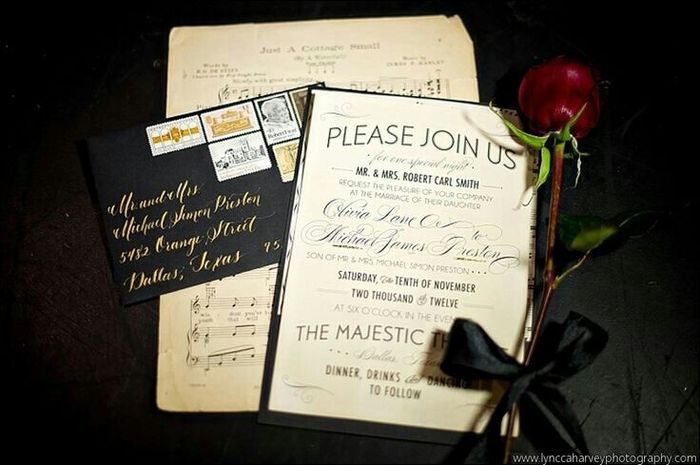 Just A Cottage Small
(By A Waterfall)
Words by
Music by
JAMES F. HANLEY
Mr. and Mrs.
Michael Simon Preston
5482 Orange Street
Dallas, Texas
75
PLEASE JOIN US
for one special night
MR. & MRS. ROBERT CARL SMITH
REQUEST THE PLEASURE OF YOUR COMPANY
AT THE MARRIAGE OF THEIR DAUGHTER
Olivia Lane to
Michael James Preston
SON OF MR & MRS. MICHAEL SIMON PRESTON
SATURDAY, the TENTH OF NOVEMBER
TWO THOUSAND & TWELVE
AT SIX O'CLOCK IN THE EVE
THE MAJESTIC TH
Dallas, Texas
DINNER, DRINKS and DANCING
TO FOLLOW
www.lynccaharveyphotography.com